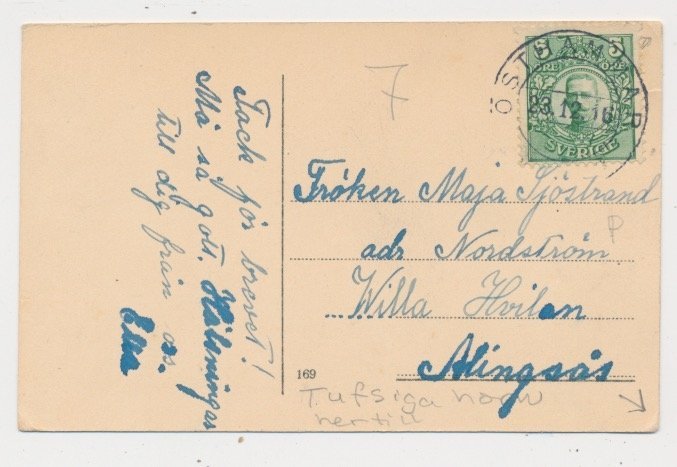 Tack för brevet!
Må så gott. Hälsningar
till dig från oss.
Ella
7
ÖSTHAMMAR
23.12.16
5 5
SVERIGE
Fröken Maja Sjöstrand
adr Nordström
Willa Hvilan
Alingsås
P
169
Tufsiga hörn